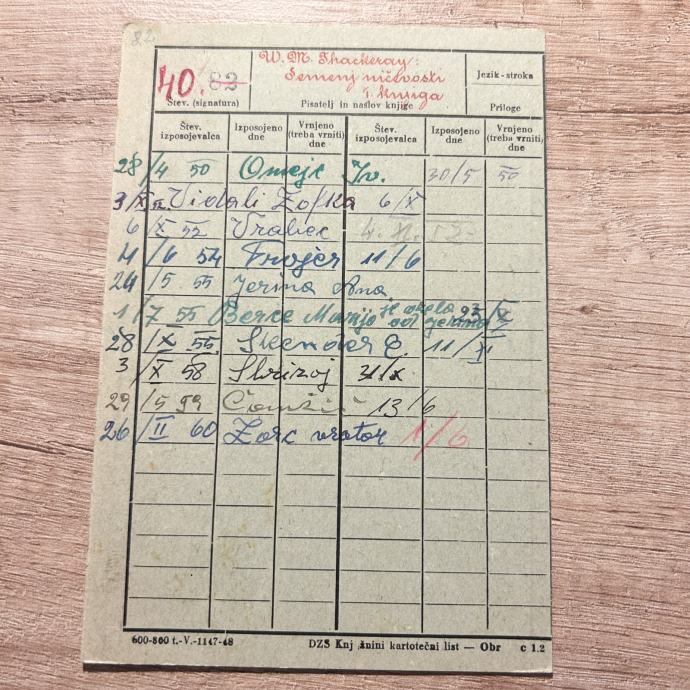 82
40. 82
W. M. Thackeray:
Semenj ničevosti
1. knjiga
Jezik - stroka
Štev. (signatura)
Pisatelj in naslov knjige
Priloge
Štev. izposojevalca Izposojeno dne Vrnjeno (treba vrniti) dne Štev. izposojevalca Izposojeno dne Vrnjeno (treba vrniti) dne
28/4 50 Omejc Iv. 30/5 50
3/X 52 Vidali Zofka 6/X
6/X 52 Vrabec 4. XI. 52
4/6 54 Frojer 11/6
24/5 55 Jerina Ana
1/7 55 Berce Marija od Jerina
28/X 55 Skender E. 11/XI
3/X 58 31/X
29/5 59 13/6
26/II 60 Zorc vrator 1/6
600-860 t.-V.-1147-48 DZS Knj žnini kartotečni list — Obr c 1.2